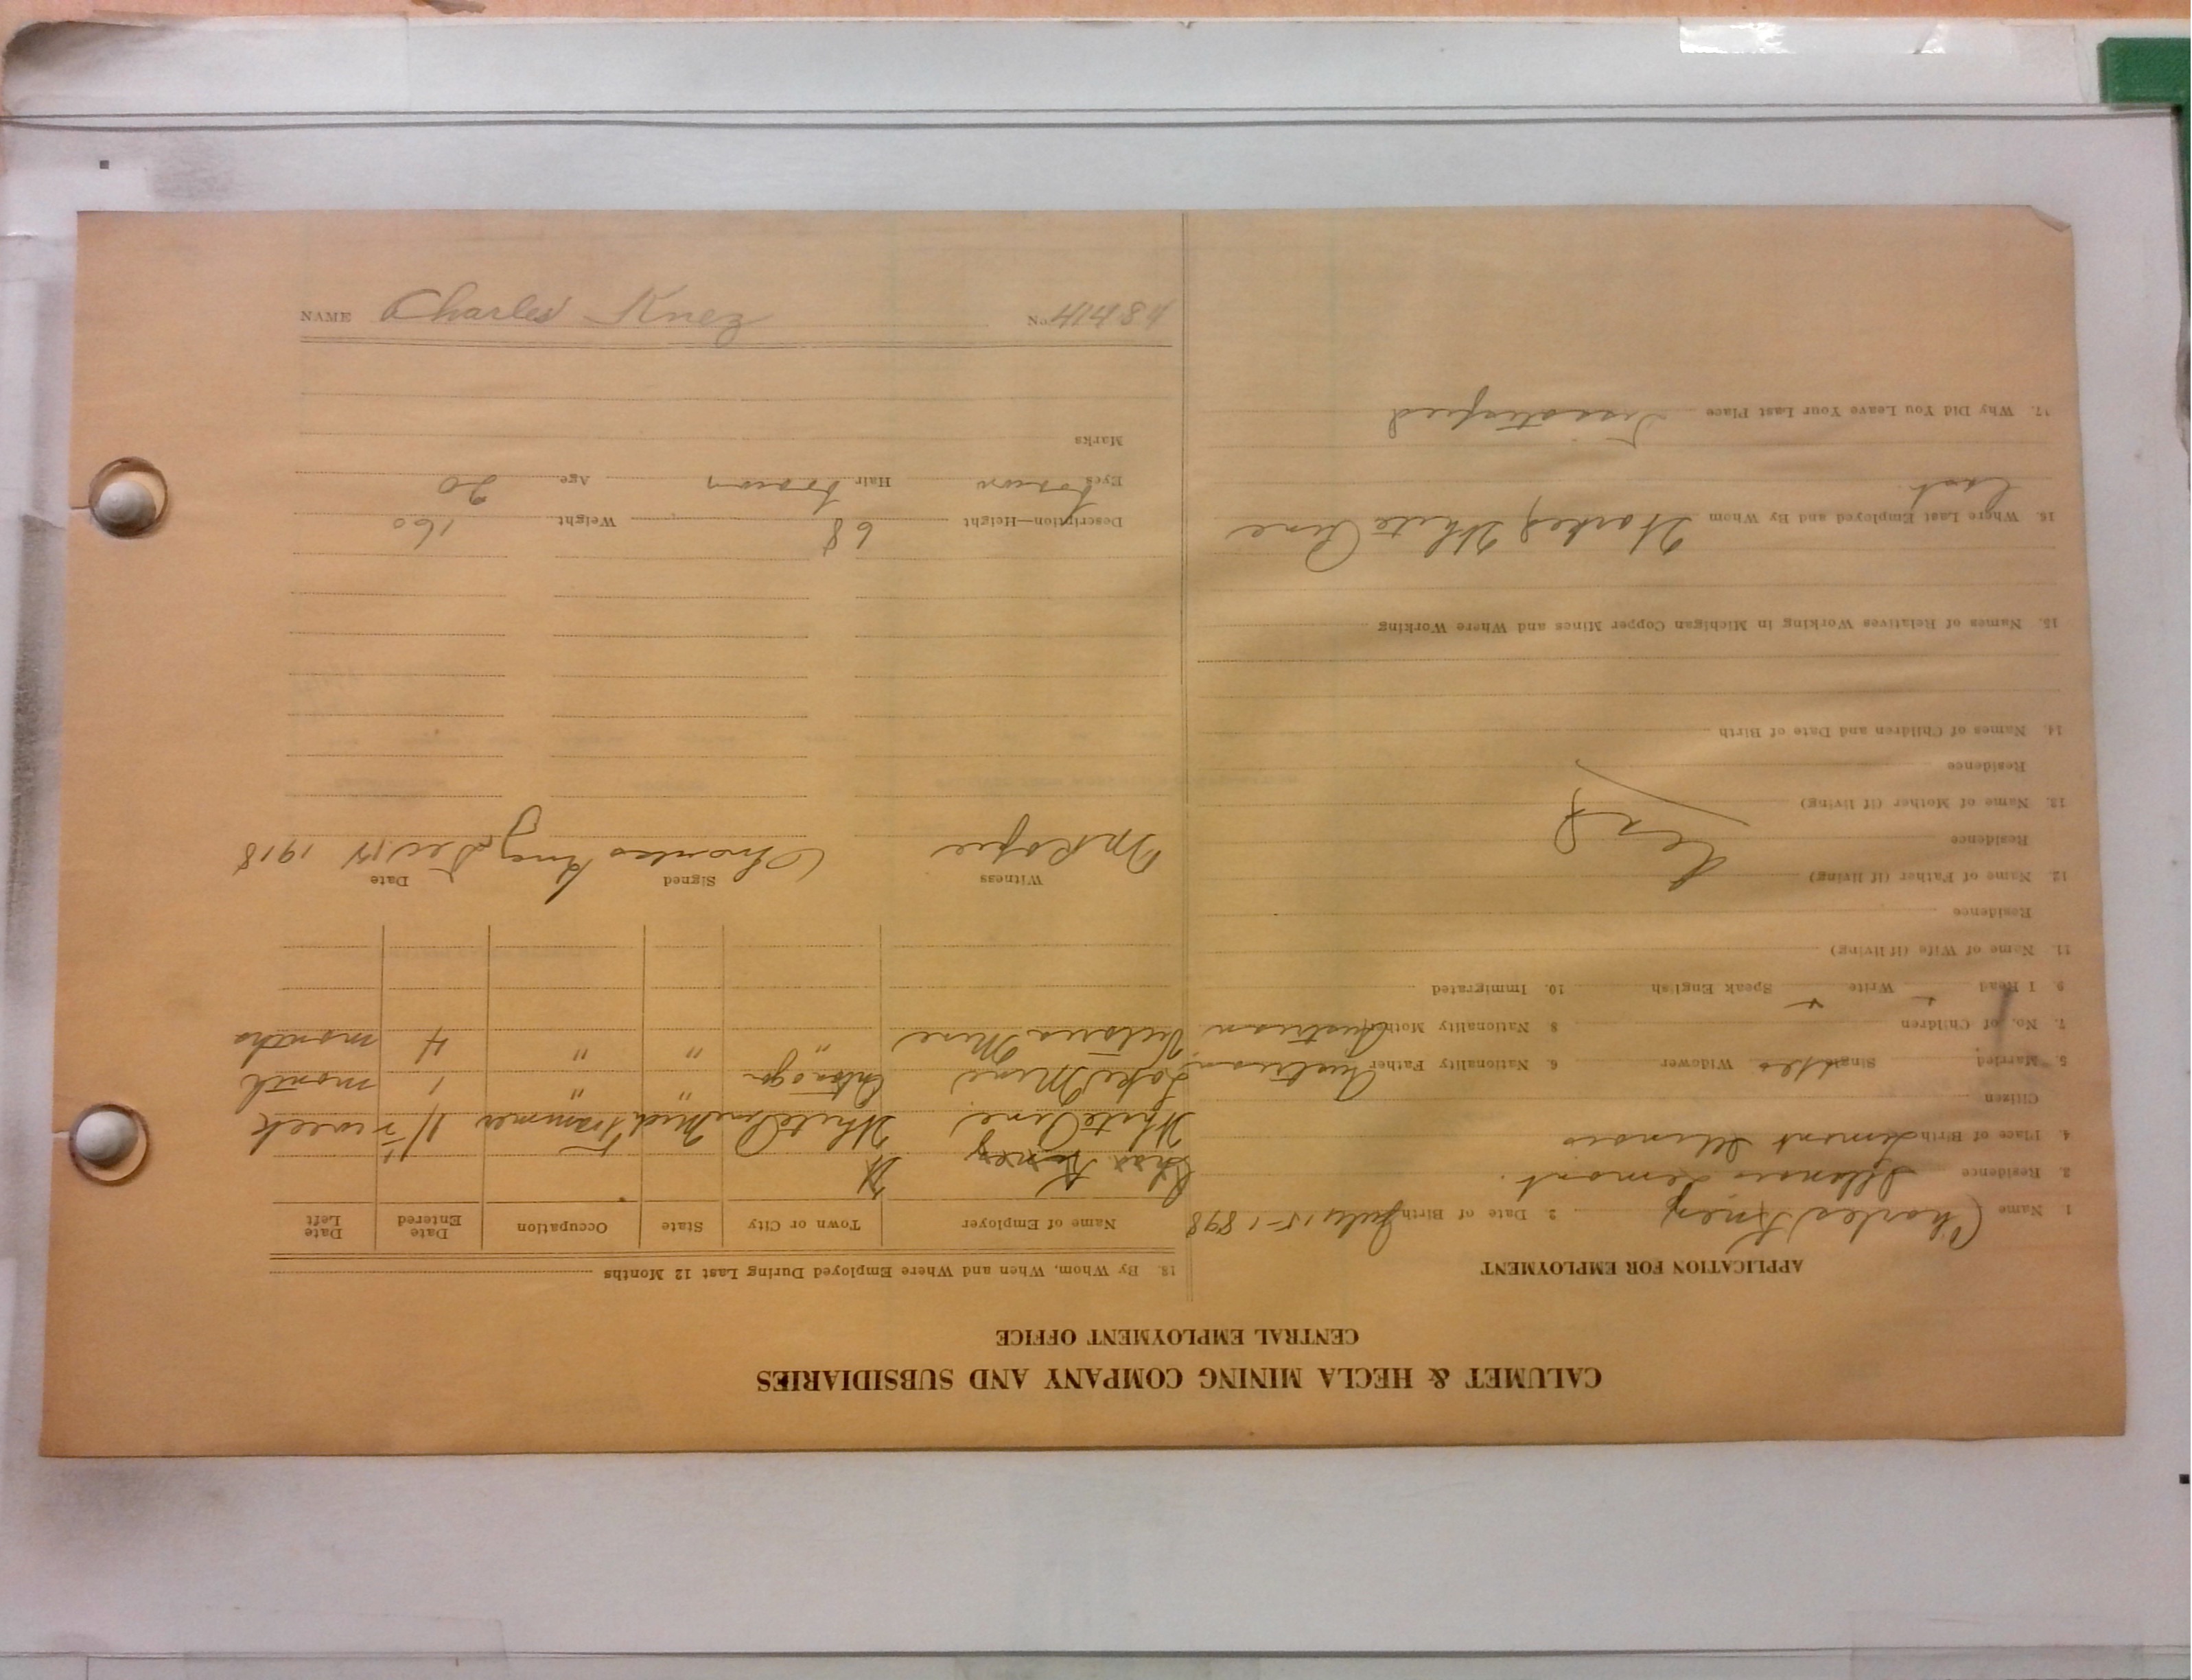 NAME Charles Knez No. 41484
CALUMET & HECLA MINING COMPANY AND SUBSIDIARIES
CENTRAL EMPLOYMENT OFFICE
APPLICATION FOR EMPLOYMENT
1 Name Charles Knez 2 Date of Birth July 15-1898
3. Residence Illinois Lemont.
4. Place of Birth Lemont Illinois
Citizen
5. Married Single Yes Widower 6. Nationality Father Austrian
7. No. of Children 8 Nationality Mother Austrian
9 I Read Write Speak English 10. Immigrated
11. Name of Wife (if living)
Residence
12. Name of Father (if living)
Residence
13. Name of Mother (if living)
Residence
14. Names of Children and Date of Birth
15. Names of Relatives Working in Michigan Copper Mines and Where Working
16. Where Last Employed and By Whom Worked White Pine
last
17. Why Did You Leave Your Last Place Dissatisfied
18. By Whom, When and Where Employed During Last 12 Months
Name of Employer Town or City State Occupation Date Entered Date Left
Chas Knez
White Pine White Pine Mich Trammer 1 1/2 week
Lake Mine Ontonagon " " 1 month
Victoria Mine " " " 4 months
Witness Signed Date
Charles Knez Dec 14 1918
Description—Height 68 Weight 160
Eyes brown Hair brown Age 20
Marks